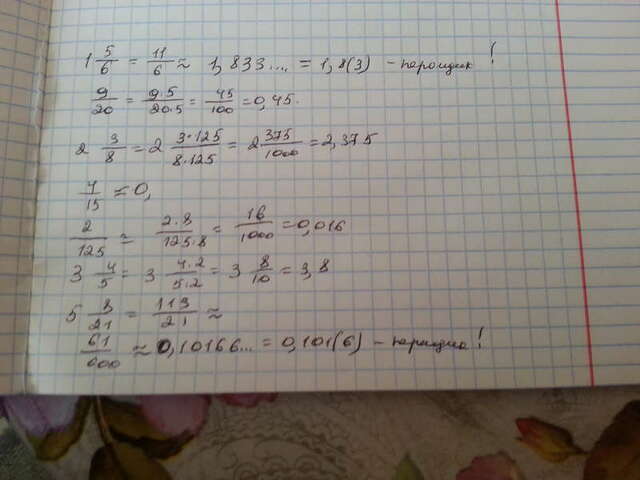 1 5/6 = 11/6 ≈ 1,833.... = 1,8(3) - пероидик!
9/20 = 9·5/20·5 = 45/100 = 0,45.
2 3/8 = 2 3·125/8·125 = 2 375/1000 = 2,375
7/15 ≈ 0,
2/125 = 2·8/125·8 = 16/1000 = 0,016
3 4/5 = 3 4·2/5·2 = 3 8/10 = 3,8
5 8/21 = 113/21 ≈
61/600 ≈ 0,10166... = 0,101(6) -!